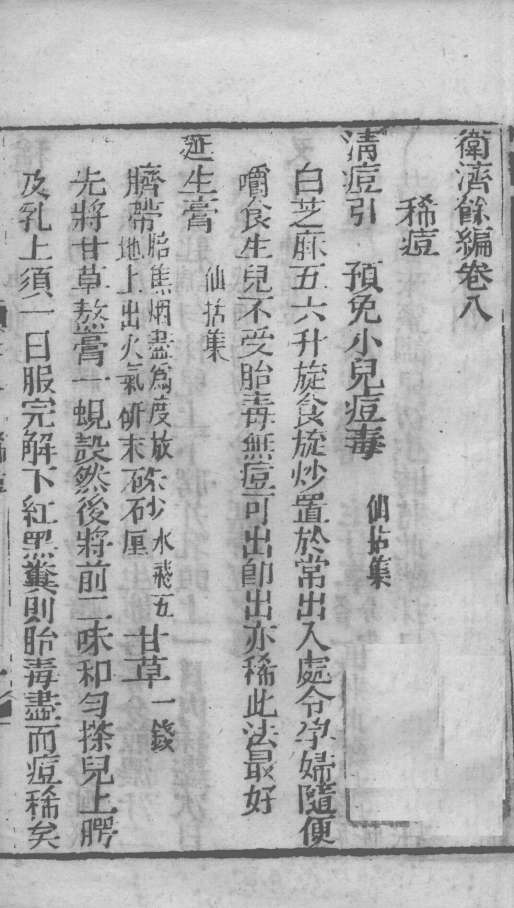 衛濟餘編卷八
稀痘
清痘引 預免小兒痘毒 仙拈集
白芝麻五六升旋食旋炒置於常出入處令孕婦隨便
嚼食生兒不受胎毒無痘可出卽出亦稀此法最好
延生膏 仙拈集
臍帶胎焦烟盡爲度放地上出火氣研末硃砂水飛五厘甘草一錢
先將甘草熬膏一蜆殼然後將前二味和勻搽兒上腭
及乳上須一日服完解下紅黑糞則胎毒盡而痘稀矣